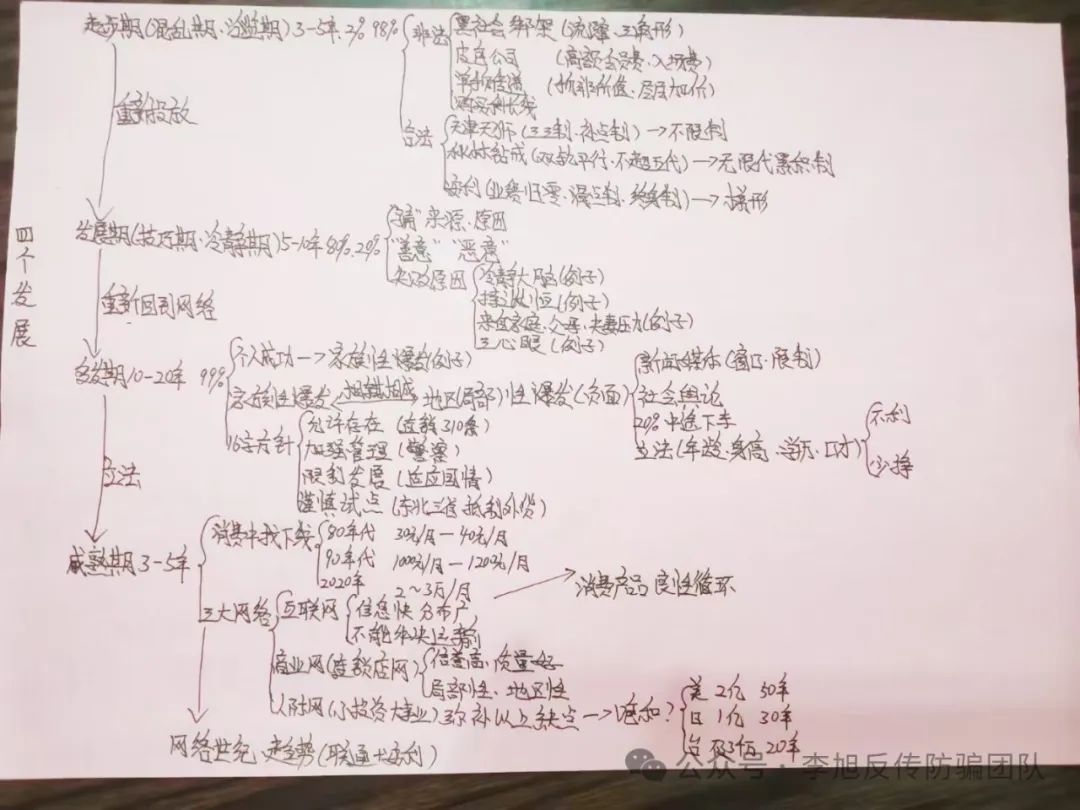 四个发展
起步期(混乱期·冷璧期)3-5年 2% 98%
非法
黑社会绑架(流窜、三角形)
皮包公司(高额会员费、入场费)
单抓传递(抓非价值、层层加价)
合法
天津天狮(三三制、补点制)→不限制
双轨平行、不超五代)→无限代累积制
安利(业费归零、
→梯形
重新投放
发展期(技巧期·冷静期)5-10年 80% 20%
来源、原因
"善意" "恶意"
失败原因
冷静大脑(例子)
持之以恒(例子)
来自家庭、父母、夫妻压力(例子)
三心眼(例子)
重新回到网络
多发期10-20年 99%
个人成功→家族性爆发(例子)
家族性爆发
相辅相成
地区(局部)性爆发(负面)
新闻媒体(窗口、限制)
社会舆论
20%中途下车
立法(年龄、身高、学历、口才)
不利
16字方针
允许存在(连锁310条)
加强管理(警察)
限制发展(适应国情)
谨慎试点(东北三省 抵制外货)
立法
成熟期3-5年
消费中找下线
80年代 30元/月-40元/月
90年代 1000元/月-1200元/月
2020年 2~3万/月
三大网络
互联网
信息快 分布广
→消费产品 良性循环
商业网(连锁店网)
信誉高、质量好
局部性、地区性
人际网(小投资大事业)弥补以上缺点→饱和?
美 2亿 50年
日 1亿 30年
台 20年
网络世纪、走趋势(联通+安利)
公众号·李旭反传防骗团队